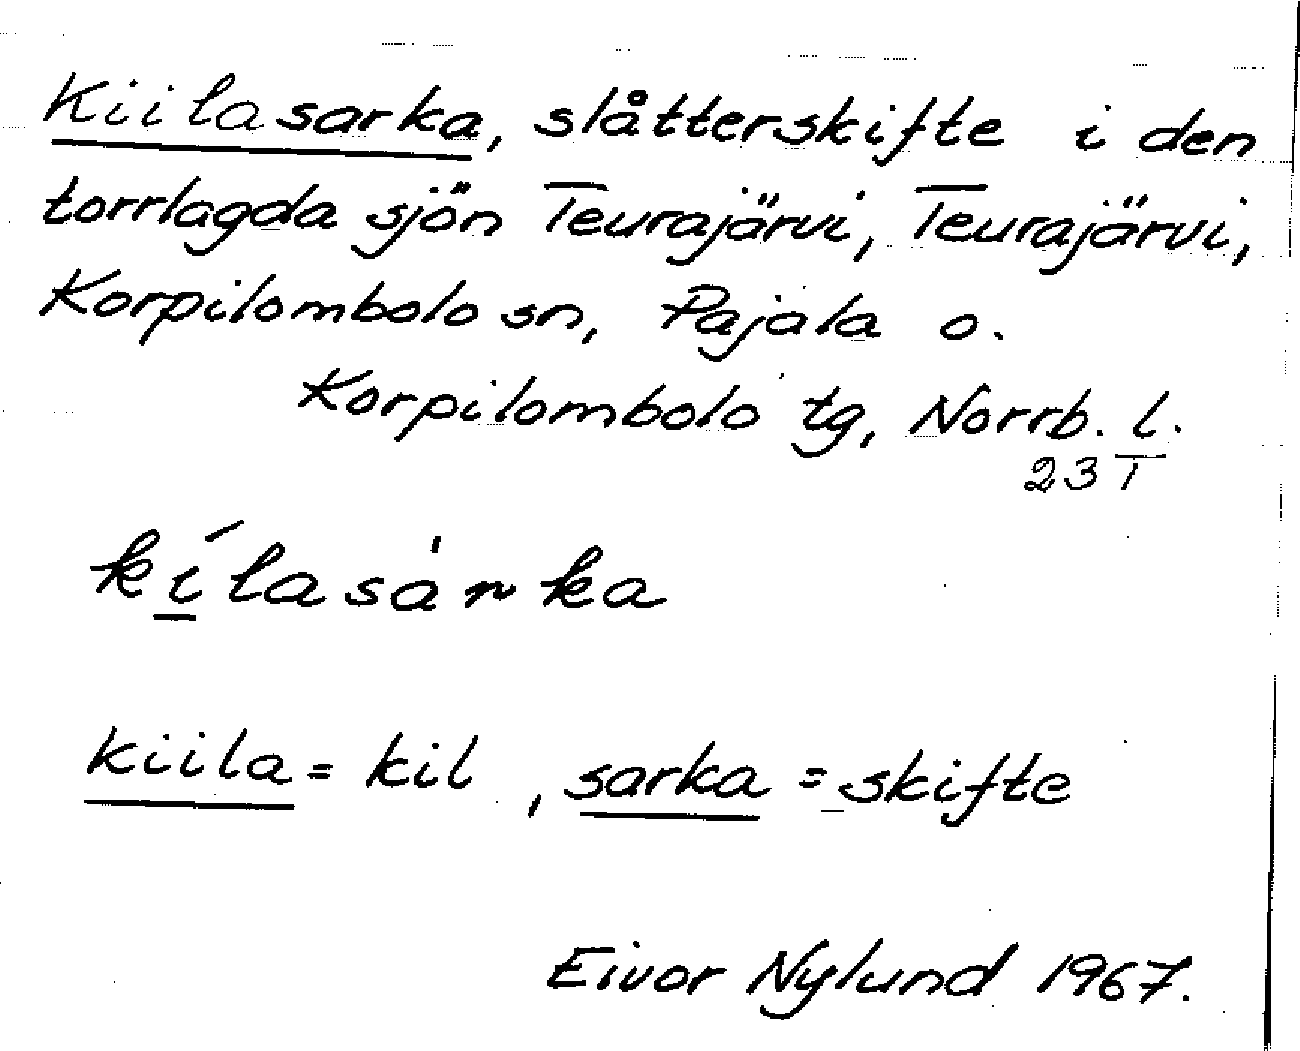 Kiilasarka, slåtterskifte i den
torrlagda sjön Teurajärvi, Teurajärvi,
Korpilombolo sn, Pajala o.
Korpilombolo tg, Norrb. l.
23 I
kí̱lasàrka
kiila = kil, sarka = skifte
Eivor Nylund 1967.